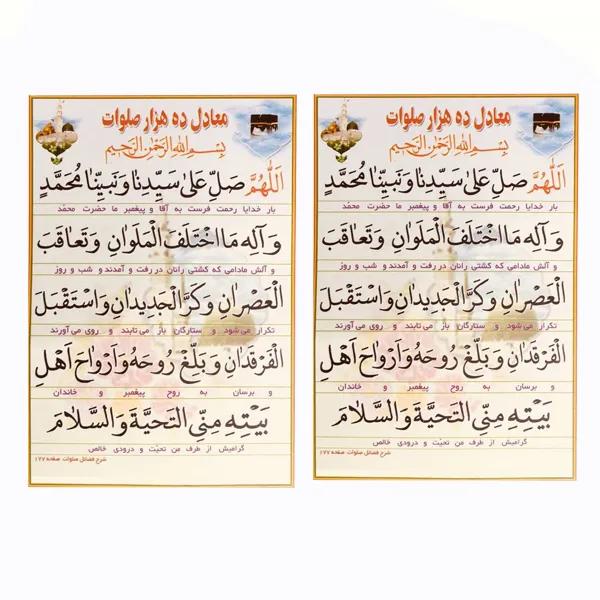 معادل ده هزار صلوات
بِسْمِ اللهِ الرَّحْمنِ الرَّحیمِ
اَللّٰهُمَّ صَلِّ عَلیٰ سَیِّدِنٰا وَنَبِیِّنٰا مُحَمَّدٍ
بار خدایا رحمت فرست به آقا و پیغمبر ما حضرت محمّد
وَ آلِهِ مَا اخْتَلَفَ الْمَلَوٰانِ وَتَعٰاقَبَ
و آلش مادامی که کشتی رانان در رفت و آمدند و شب و روز
الْعَصْرٰانِ وَکَرَّ الْجَدیدٰانِ وَاسْتَقْبَلَ
تکرار می شود و ستارگان باز می تابند و روی می آورند
الْفَرْقَدٰانِ وَبَلِّغْ رُوحَهُ وَاَرْوٰاحَ اَهْلِ
و برسان به روح پیغمبر و خاندان
بَیْتِهِ مِنِّی التَّحیَّةَ وَالسَّلٰامَ
گرامیش از طرف من تحیّت و درودی خالص
شرح فضائل صلوات صفحه ۱۷۷
معادل ده هزار صلوات
بِسْمِ اللهِ الرَّحْمنِ الرَّحیمِ
اَللّٰهُمَّ صَلِّ عَلیٰ سَیِّدِنٰا وَنَبِیِّنٰا مُحَمَّدٍ
بار خدایا رحمت فرست به آقا و پیغمبر ما حضرت محمّد
وَ آلِهِ مَا اخْتَلَفَ الْمَلَوٰانِ وَتَعٰاقَبَ
و آلش مادامی که کشتی رانان در رفت و آمدند و شب و روز
الْعَصْرٰانِ وَکَرَّ الْجَدیدٰانِ وَاسْتَقْبَلَ
تکرار می شود و ستارگان باز می تابند و روی می آورند
الْفَرْقَدٰانِ وَبَلِّغْ رُوحَهُ وَاَرْوٰاحَ اَهْلِ
و برسان به روح پیغمبر و خاندان
بَیْتِهِ مِنِّی التَّحیَّةَ وَالسَّلٰامَ
گرامیش از طرف من تحیّت و درودی خالص
شرح فضائل صلوات صفحه ۱۷۷